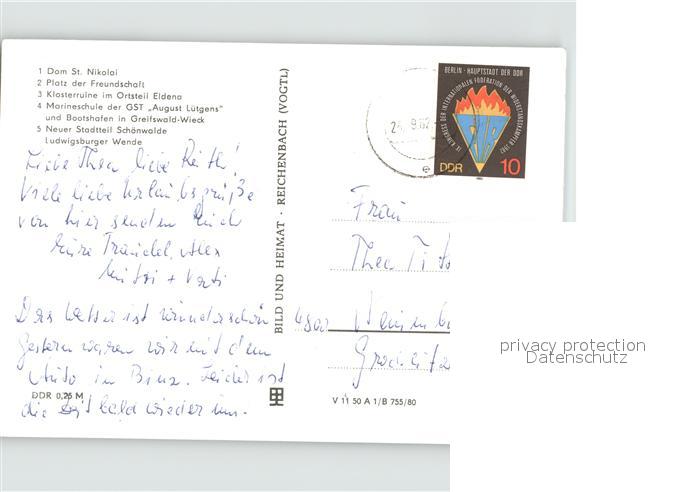 1 Dom St. Nikolai
2 Platz der Freundschaft
3 Klosterruine im Ortsteil Eldena
4 Marineschule der GST „August Lütgens"
und Bootshafen in Greifswald-Wieck
5 Neuer Stadtteil Schönwalde
Ludwigsburger Wende
Liebe Thea, liebe
Viele liebe Urlaubsgrüße
von hier senden Euch
Eure Traudel, Alex
Das Wetter ist wunderschön
Gestern waren wir mit dem
Auto in Binz. Leider ist
die Zeit bald wieder um.
DDR 0,25 M
BILD UND HEIMAT · REICHENBACH (VOGTL)
V 11 50 A 1/B 755/80
BERLIN · HAUPTSTADT DER DDR
IX. KONGRESS DER INTERNATIONALEN FÖDERATION DER WIDERSTANDSKÄMPFER 1982
FIR
DDR 10
Frau
Thea
4800
privacy protection
Datenschutz